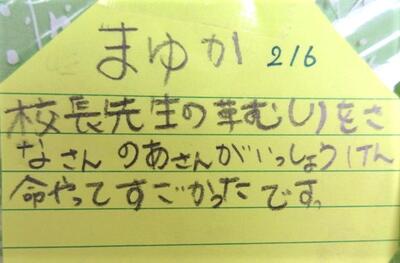 まゆか 2/6
校長先生の草むしりをさ
なさんのあさんがいっしょうけん
命やってすごかったです。